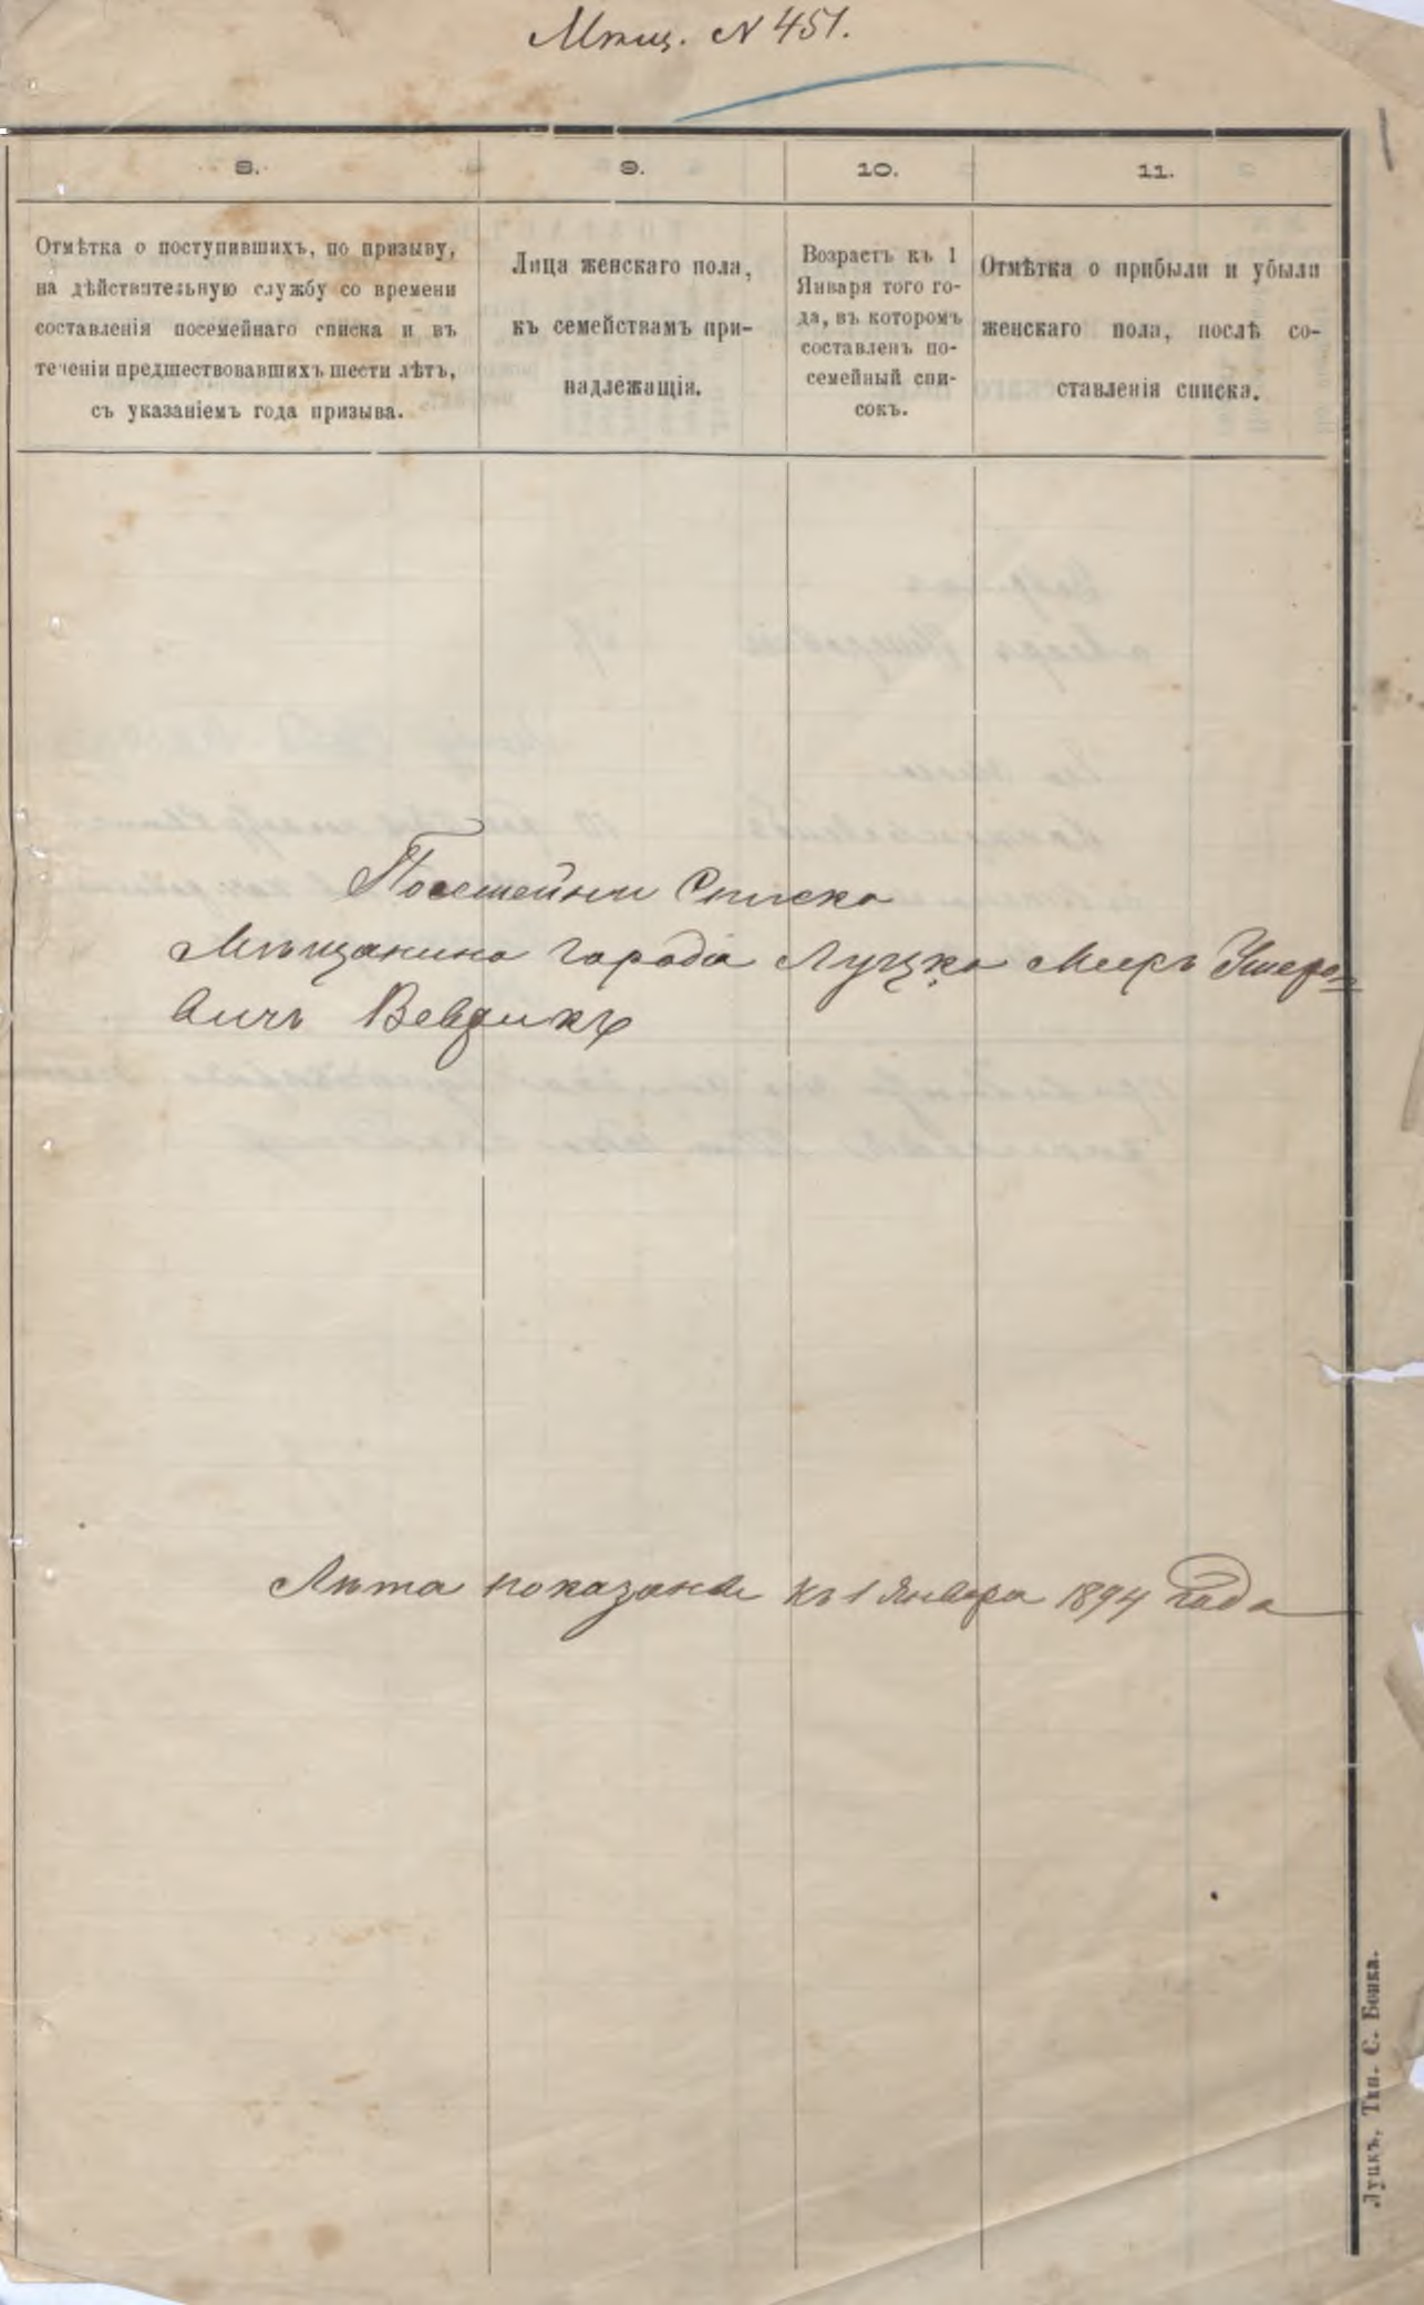 Мѣщ. N 451.
8.
9.
10.
11.
Отмѣтка о поступившихъ, по призыву,
на дѣйствительную службу со времени
составленія посемейнаго списка и въ
теченіи предшествовавшихъ шести лѣтъ,
съ указаніемъ года призыва.
Лица женскаго пола,
къ семействамъ при-
надлежащія.
Возрастъ къ 1
Января того го-
да, въ которомъ
составленъ по-
семейный спи-
сокъ.
Отмѣтка о прибыли и убыли
женскаго пола, послѣ со-
ставленія списка.
Посемейни Списка
Мѣщанина города Луцка Меиръ Ушеро-
вичъ
Лѣта показаны къ 1 Января 1894 года
Луцкъ, Тип. С. Бонка.